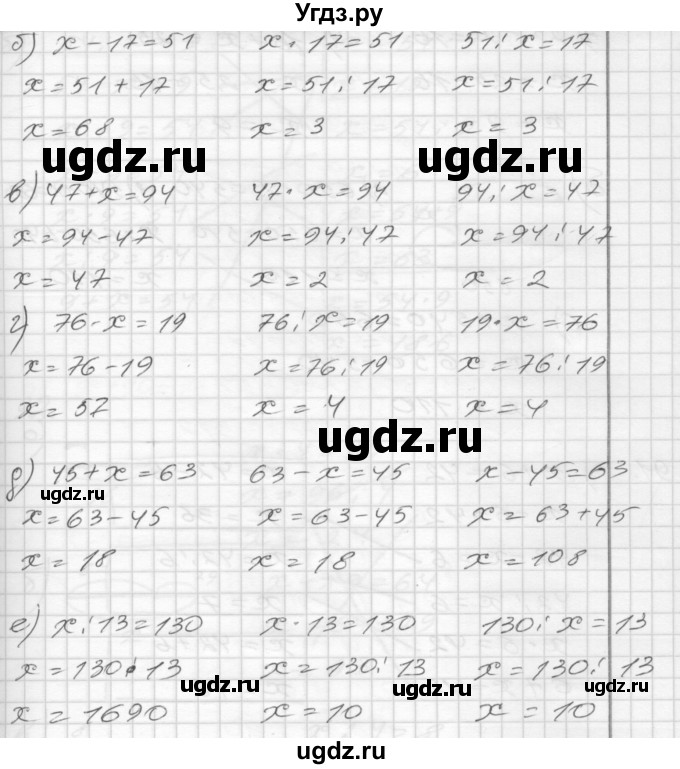 Угдз.ру
б) x - 17 = 51 x · 17 = 51 51 : x = 17
x = 51 + 17 x = 51 : 17 x = 51 : 17
x = 68 x = 3 x = 3
ugdz.ru ugdz.ru
в) 47 + x = 94 47 · x = 94 94 : x = 47
x = 94 - 47 x = 94 : 47 x = 94 : 47
x = 47 x = 2 x = 2
г) 76 - x = 19 76 : x = 19 19 · x = 76
x = 76 - 19 x = 76 : 19 x = 76 : 19
x = 57 x = 4 x = 4
ugdz.ru
д) 45 + x = 63 63 - x = 45 x - 45 = 63
ugdz.ru
x = 63 - 45 x = 63 - 45 x = 63 + 45
x = 18 x = 18 x = 108
е) x : 13 = 130 x · 13 = 130 130 : x = 13
x = 130 · 13 x = 130 : 13 x = 130 : 13
ugdz.ru ugdz.ru ugdz.ru
x = 1690 x = 10 x = 10
ugdz.ru